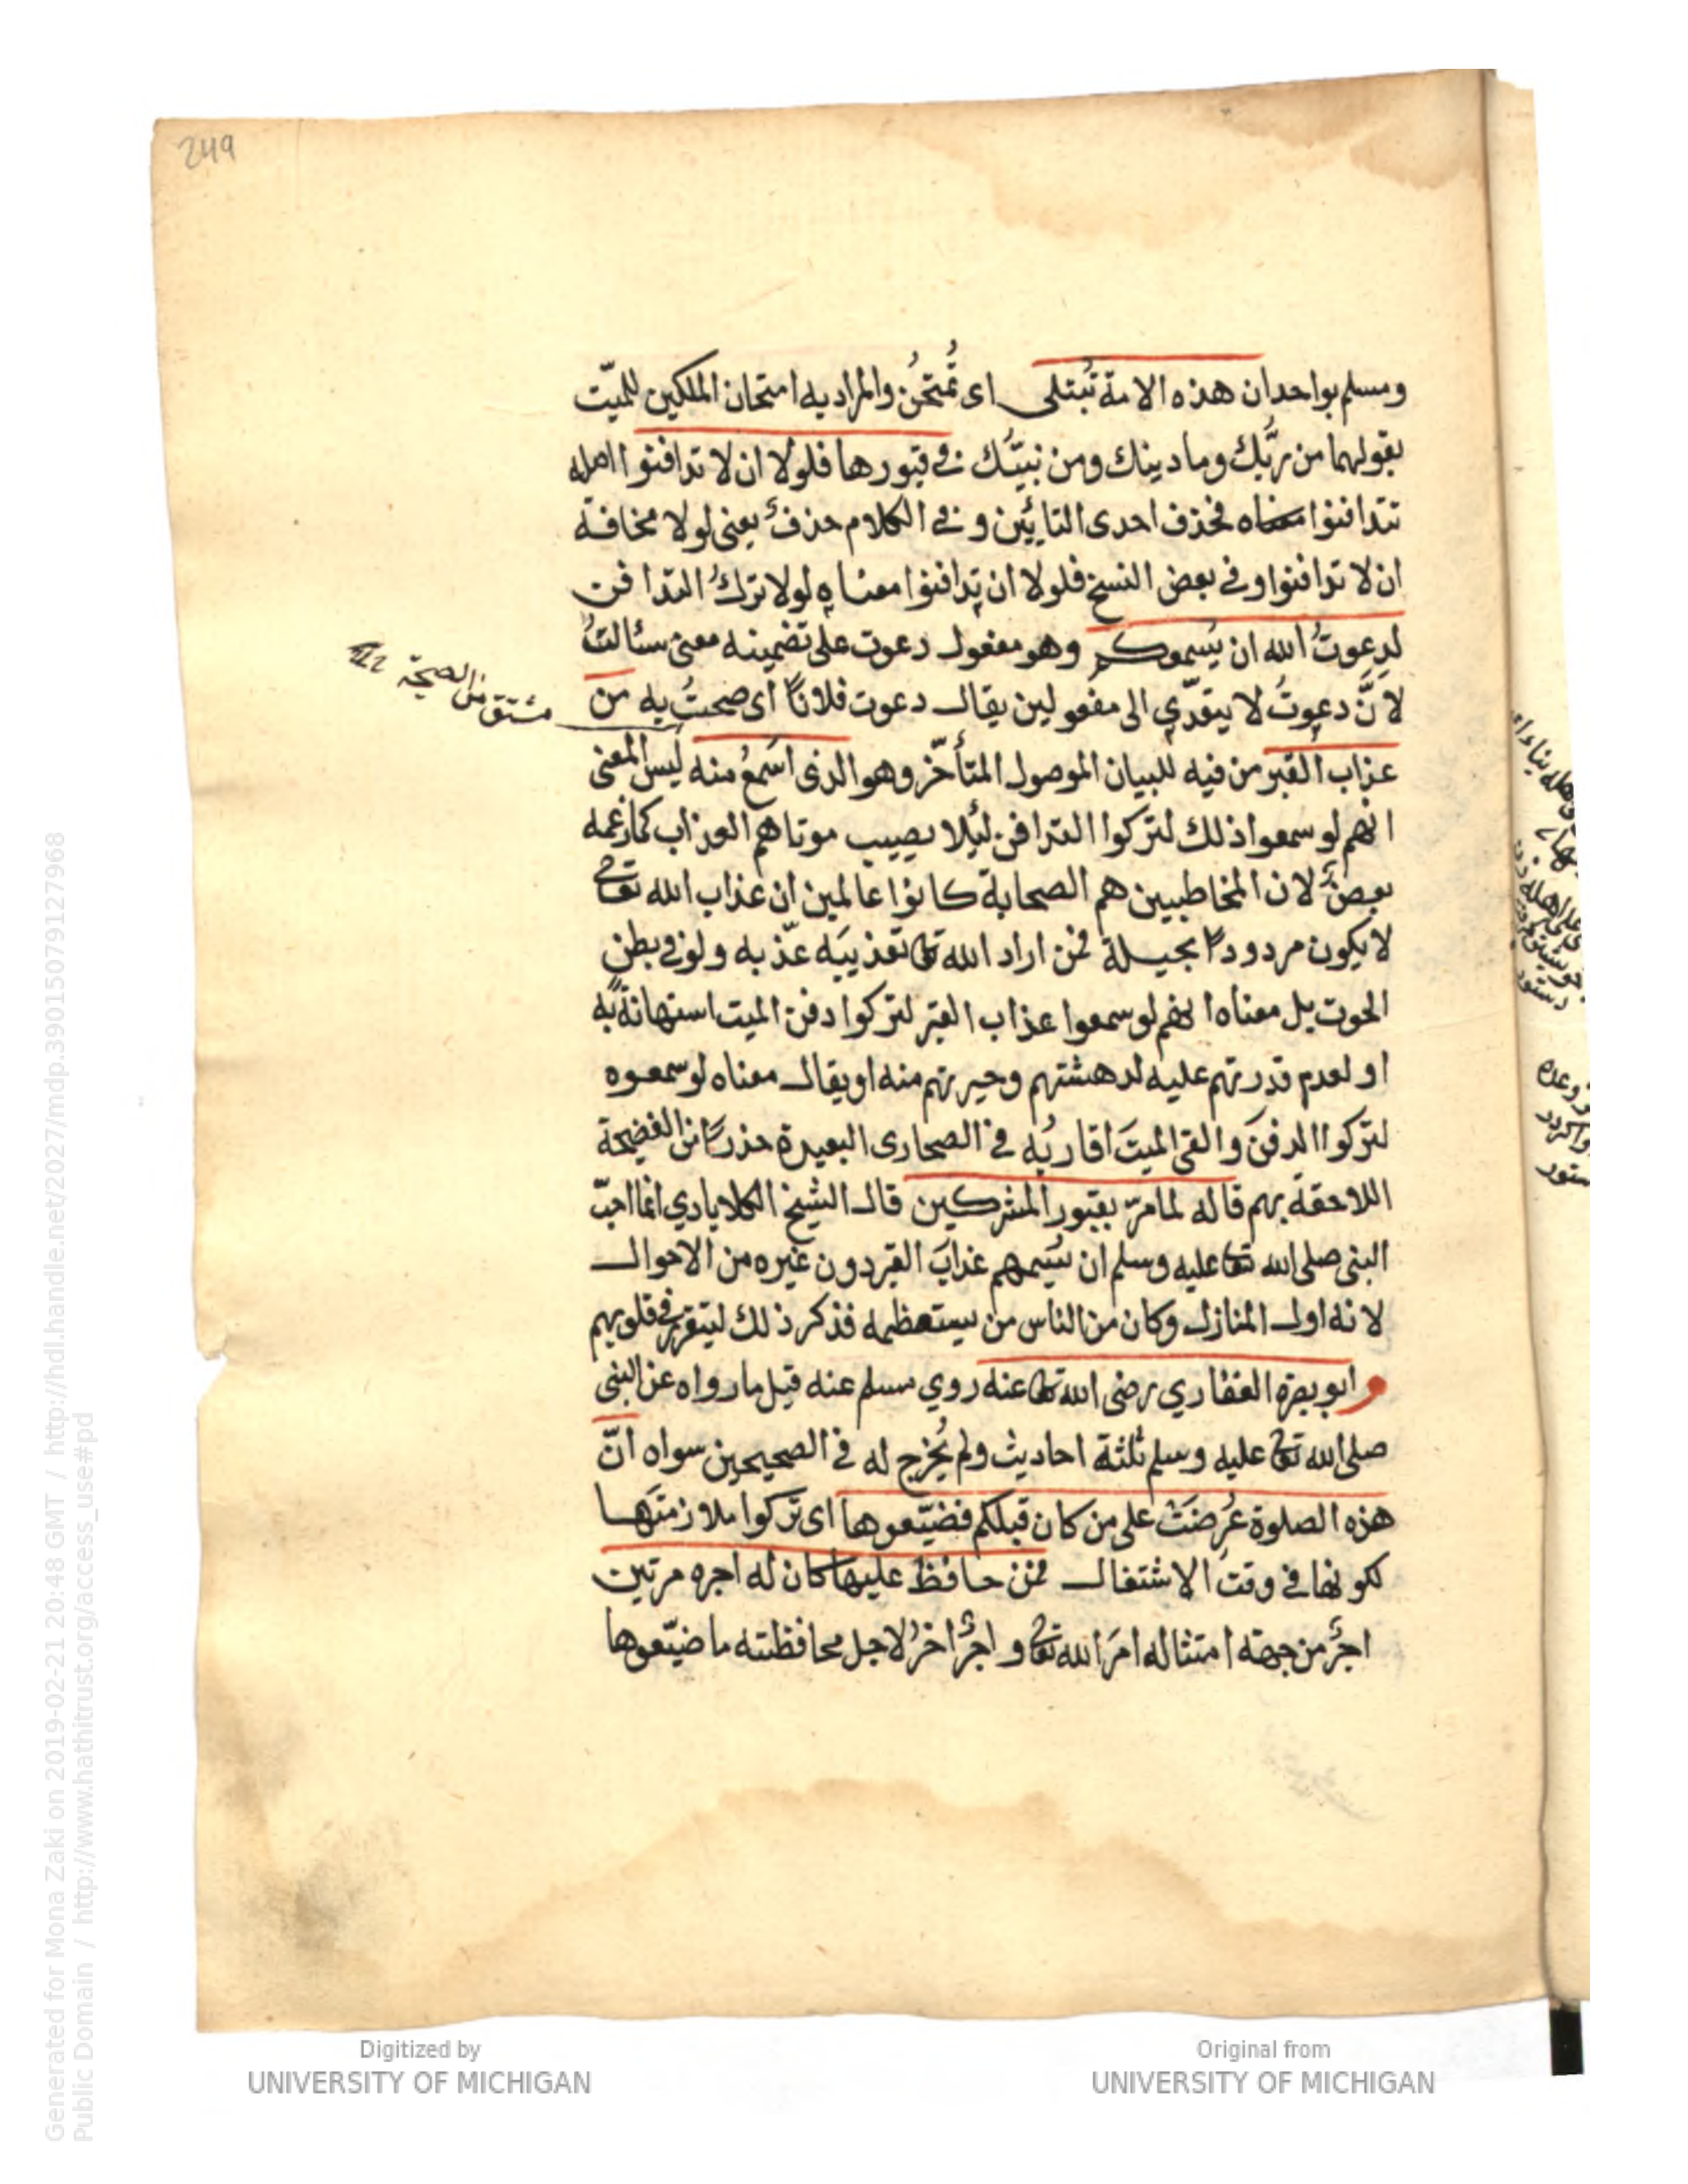 249
ومسلم بواحد ان هذه الامة تُبتلى اى تُمتحَنُ والمراد به امتحان الملكين للميّت
بقولهما من ربُّك وما دينك ومن نبيّك فى قبورها فلولا ان لا تدافنوا اصله
تتدافنوا فحذف احدى التائين و فى الكلام حذفٌ يعنى لولا مخافة
ان لا تدافنوا وفى بعض النسخ فلولا ان تدافنوا معناه لولا تركُ التدافن
لدعوتُ الله ان يُسمعكم وهو مفعول دعوت على تضمينه معنى سئالتُ
لانَّ دعوتُ لا يتعدّي الى مفعولين يقال دعوت فلاناً اى صحتُ به من
مشتق من الصيحة
عذاب القبر من فيه للبيان الموصول المتأخّر وهو الذى اسمعُ منه ليس المعنى
انهم لو سمعوا ذلك لتركوا التدافن لئلا يصيب موتاهم العذاب كما زعمه
بعضٌ لان المخاطبين هم الصحابة كانوا عالمين ان عذاب الله تعالى
لا يكون مردوداً بحيلة فمن اراد الله تعالى تعذيبَه عذّبه ولو فى بطن
الحوت بل معناه انهم لو سمعوا عذاب القبر لتركوا دفن الميت استهانةً به
او لعدم قدرتهم عليه لدهشتهم وحيرتهم منه او يقال معناه لو سمعوه
لتركوا الدفنَ والقى الميتَ اقاربُه فى الصحارى البعيدة حذراً من الفضيحة
اللاحقة بهم قاله لما مرّ بقبور المشركين قال الشيخ الكلابادي انما احبّ
النبى صلى الله تعالى عليه وسلم ان يُسمعهم عذابَ القبر دون غيره من الاحوال
لانه اول المنازل وكان من الناس من يستعظمه فذكر ذلك ليتقرر فى قلوبهم
و ابو بصرة الغفاري رضى الله تعالى عنه روي مسلم عنه قيل ما رواه عن النبى
صلى الله تعالى عليه وسلم ثلثة احاديث ولم يُخرج له فى الصحيحين سواه انّ
هذه الصلوة عُرِضَتْ على من كان قبلكم فضيّعوها اى تركوا ملازمتَها
لكونها فى وقت الاشتغال فمن حافظ عليها كان له اجره مرتين
اجرٌ من جهة امتثاله امرَ الله تعالى و اجرٌ اخرُ لاجل محافظته ما ضيّعوها
Digitized by
UNIVERSITY OF MICHIGAN
Original from
UNIVERSITY OF MICHIGAN
Generated for Mona Zaki on 2019-02-21 20:48 GMT / http://hdl.handle.net/2027/mdp.39015079127968
Public Domain / http://www.hathitrust.org/access_use#pd